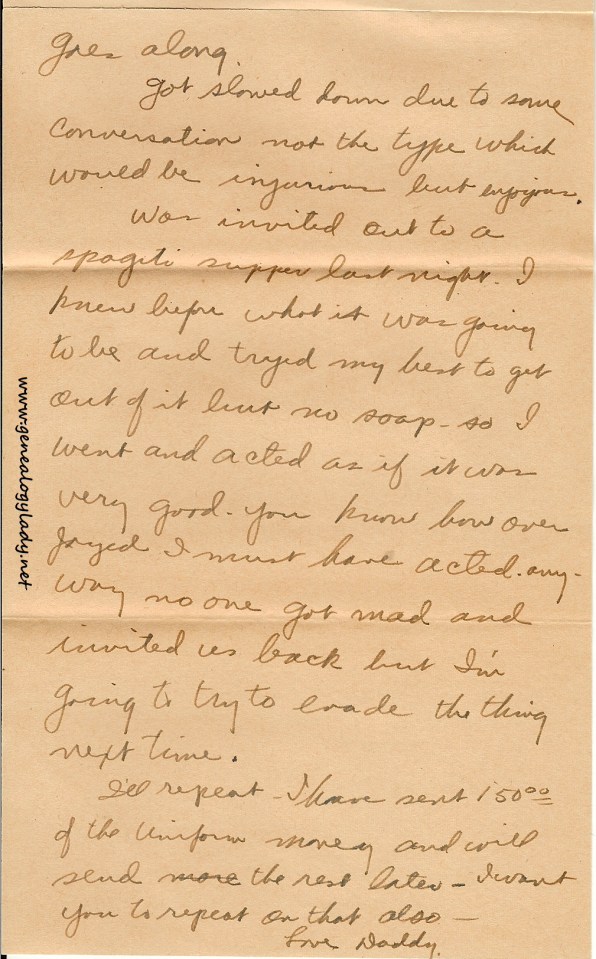 goes along.
Got slowed down due to some
conversation not the type which
would be injurious but enjoyous.
Was invited out to a
spagiti supper last night. I
knew before what it was going
to be and tryed my best to get
out of it but no soap - so I
went and acted as if it was
very good. You know how over
joyed I must have acted. any-
way no one got mad and
invited us back but I'm
going to try to evade the thing
next time.
I'll repeat - I have sent 150 00
of the uniform money and will
send more the rest later - I want
you to repeat on that also -
Love Daddy.
www.genealogylady.net